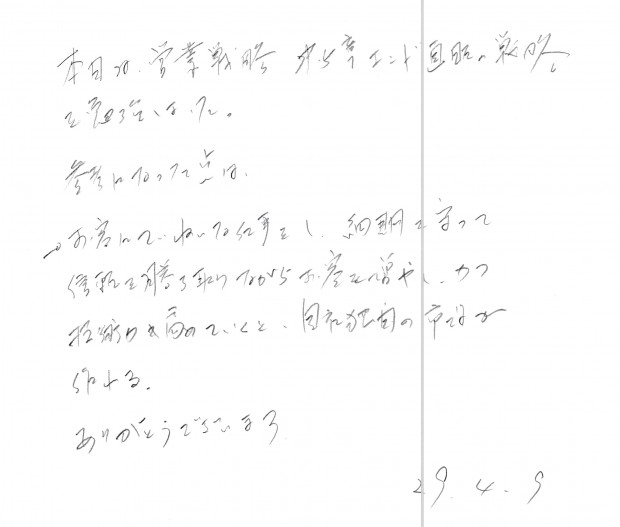 本日は、営業戦略 中心章エンド直販の戦略
を勉強しました。
参考になった点は、
お客にていねいな仕事をし、納期を守って
信頼を勝ち取りながらお客を増やし、かつ
技術力を高めていくと、自社独自の市場が
作れる。
ありがとうございます
29.4.9